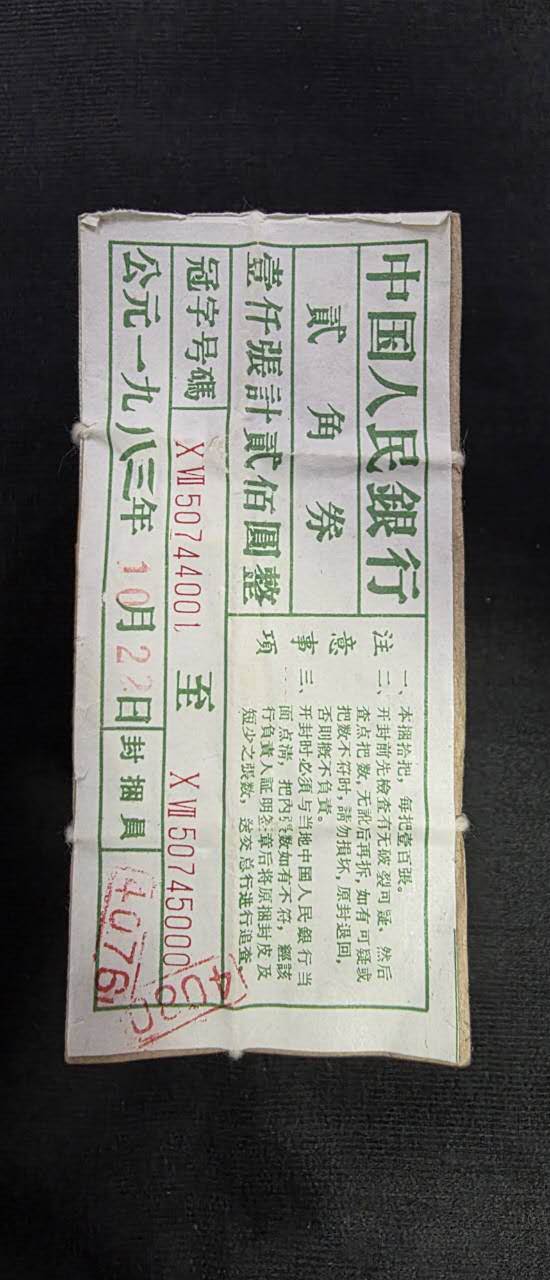 中国人民銀行
貳角券
壹仟張計貳佰圓整
冠字号碼
XⅦ50744001 至 XⅦ50745000
公元一九八三年10月22日
封捆員
4076
注意事項
一、本捆拾把，每把壹百張。
二、开封前先檢查有无破裂可疑，然后
查点把数，无訛后再拆，如有可疑或
把数不符时，請勿損坏，原封退回，
否則概不負責。
三、开封时必須与当地中国人民銀行当
面点清，把内張数如有不符，經該
行負責人証明签章后将原捆封皮及
短少之張数，送交总行進行追查。